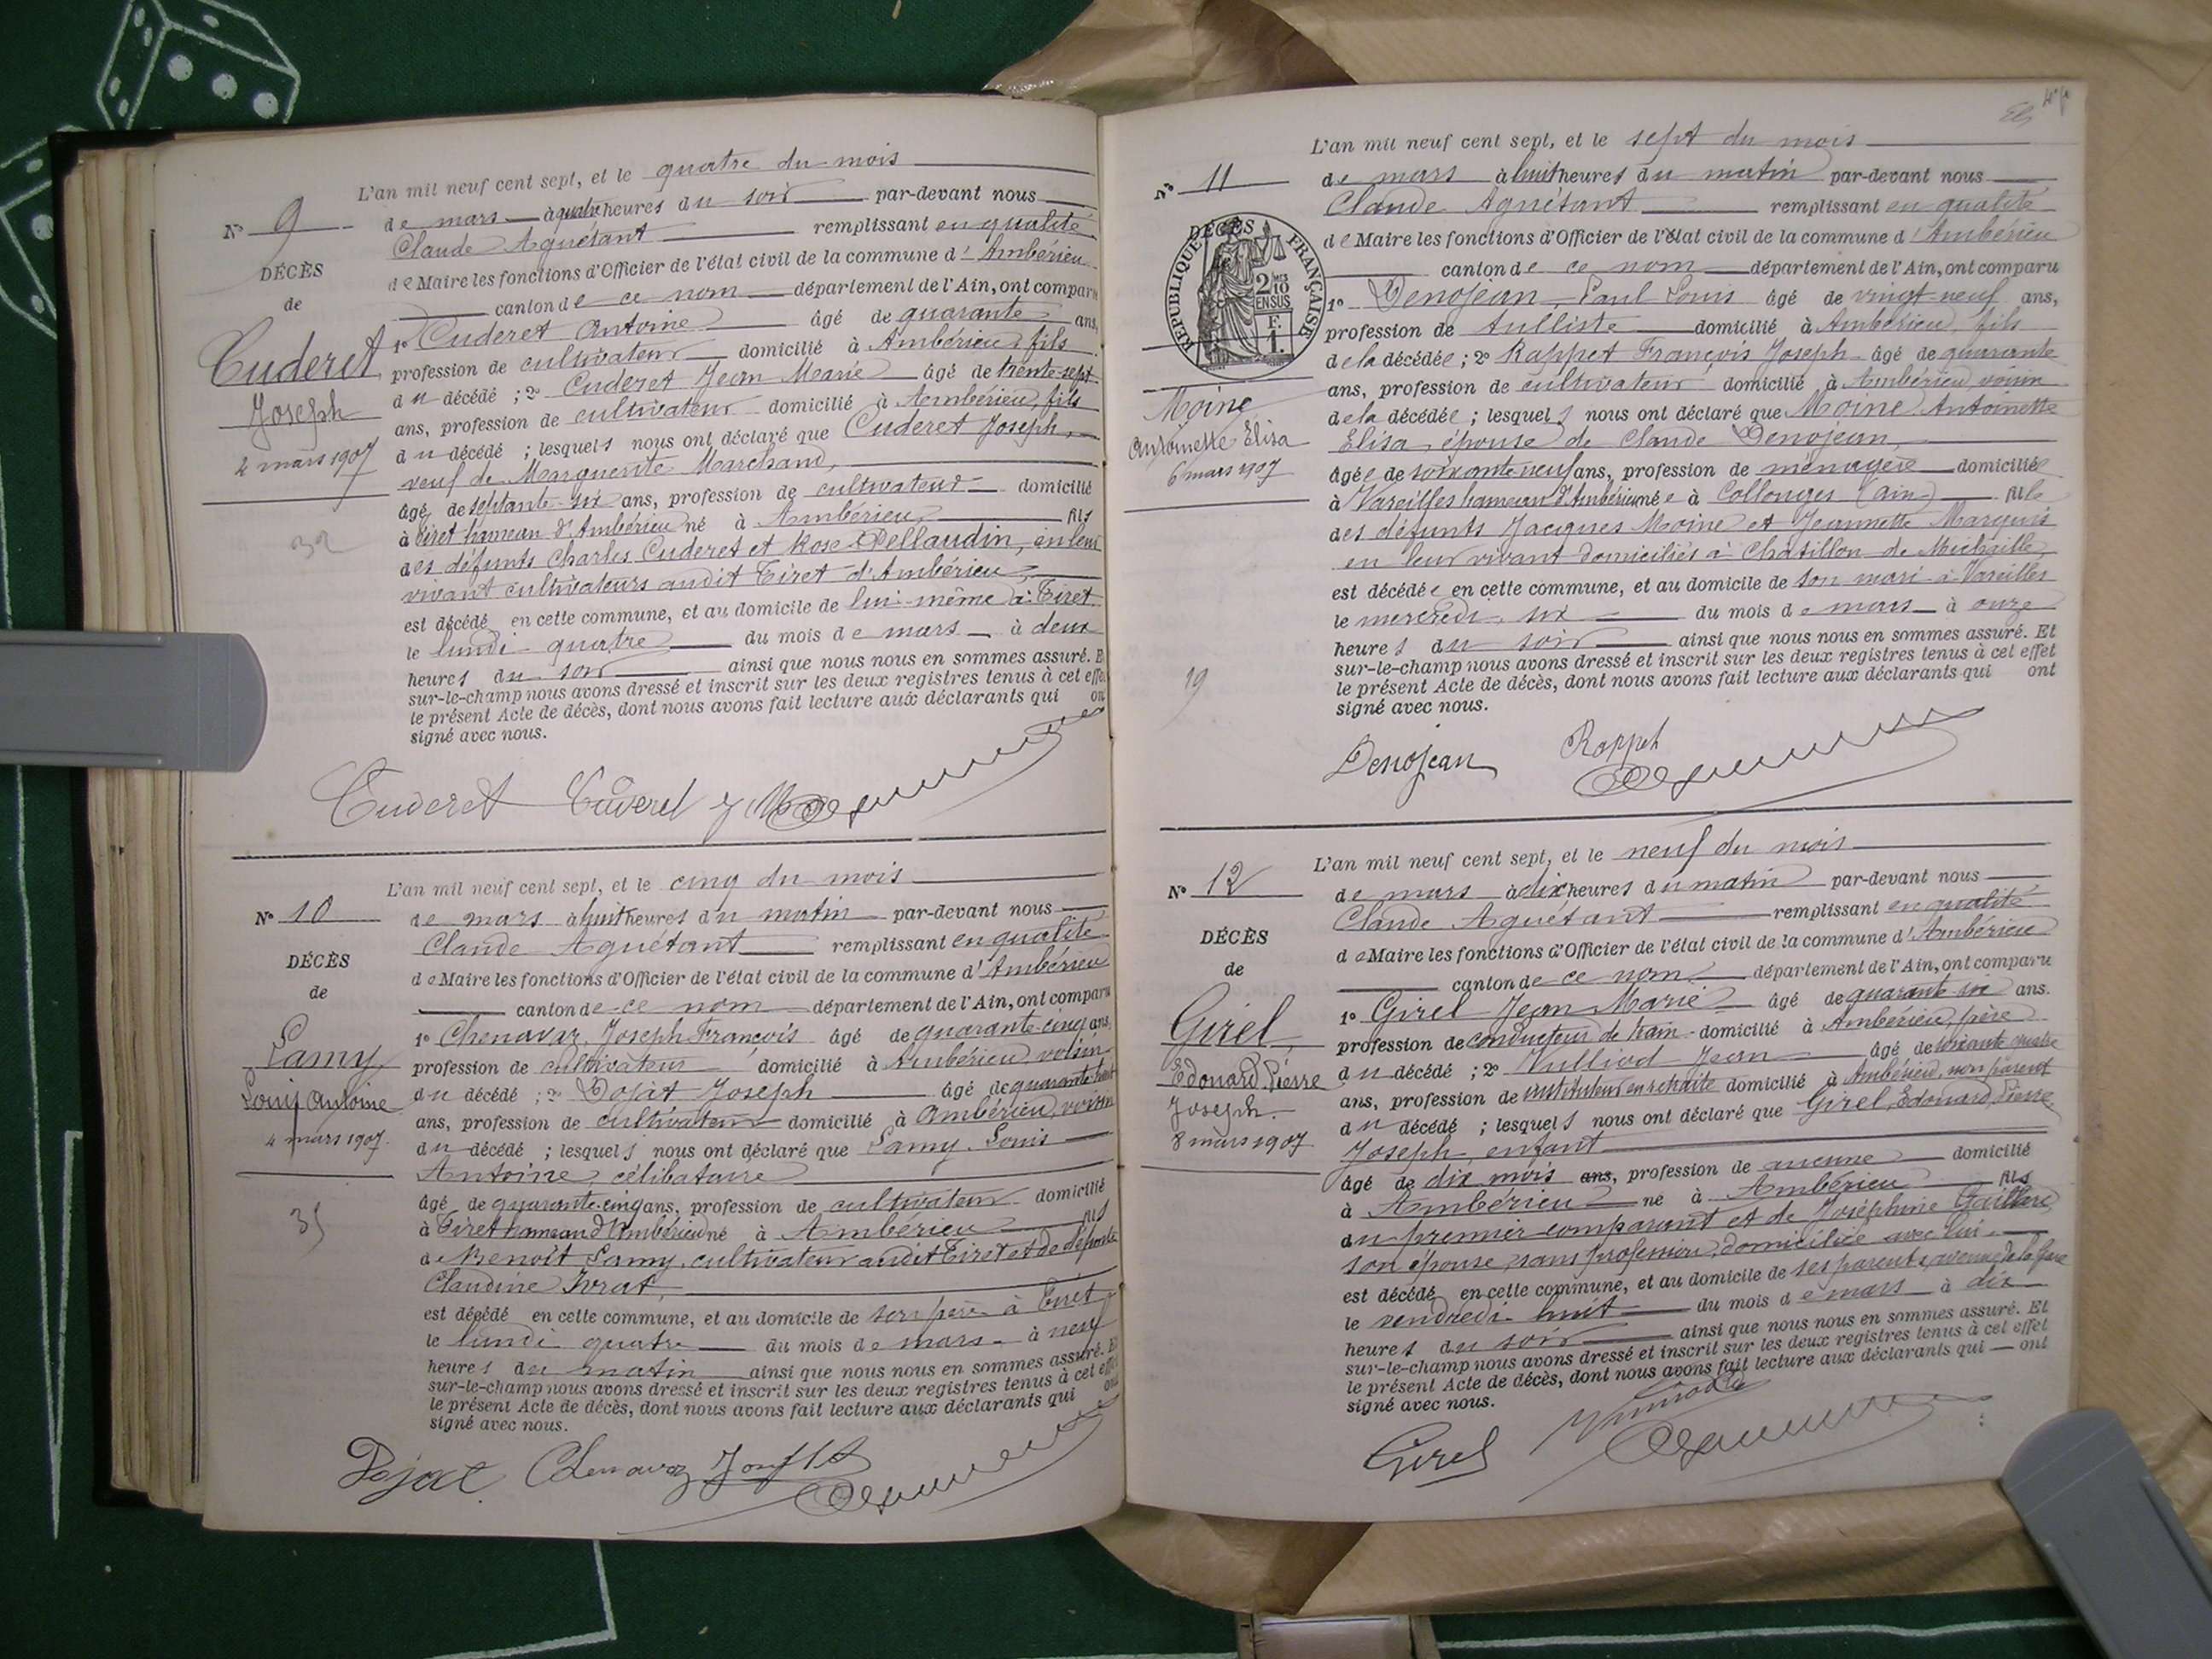 L'an mil neuf cent sept, et le quatre du mois
N° 9
de mars à quatre heures du soir par-devant nous
Claude Aguétant remplissant en qualité
DÉCÈS
de Maire les fonctions d'Officier de l'état civil de la commune d'Ambérieu
de
canton de ce nom département de l'Ain, ont comparu
Cuderet
1° Cuderet Antoine âgé de quarante ans,
profession de cultivateur domicilié à Ambérieu, fils
Joseph
du décédé ; 2° Cuderet Jean Marie âgé de trente-sept
ans, profession de cultivateur domicilié à Ambérieu, fils
4 mars 1907
du décédé ; lesquels nous ont déclaré que Cuderet Joseph,
veuf de Marguerite Marchand,
âgé de septante-six ans, profession de cultivateur domicilié
à Tiret hameau d'Ambérieu né à Ambérieu fils
32
des défunts Charles Cuderet et Rose Pellaudin, en leur
vivant cultivateurs audit Tiret d'Ambérieu,
est décédé en cette commune, et au domicile de lui-même à Tiret
le lundi quatre du mois de mars à deux
heures du soir ainsi que nous nous en sommes assuré. E
sur-le-champ nous avons dressé et inscrit sur les deux registres tenus à cet effe
le présent Acte de décès, dont nous avons fait lecture aux déclarants qui on
signé avec nous.
Cuderet
L'an mil neuf cent sept, et le cinq du mois
N° 10
de mars à huit heures du matin par-devant nous
Claude Aguétant remplissant en qualité
DÉCÈS
de Maire les fonctions d'Officier de l'état civil de la commune d'Ambérieu
de
canton de ce nom département de l'Ain, ont comparu
Lamy
1° Chenavaz Joseph François âgé de quarante-cinq ans,
profession de cultivateur domicilié à Ambérieu voisin
Louis Antoine
du décédé ; 2° Dojat Joseph âgé de quarante huit
ans, profession de cultivateur domicilié à Ambérieu, voisin
4 mars 1907.
du décédé ; lesquels nous ont déclaré que Lamy Louis
Antoine, célibataire
âgé de quarante-cinq ans, profession de cultivateur domicilié
35
à Tiret hameau d'Ambérieu né à Ambérieu fils
de Benoît Lamy, cultivateur audit Tiret et de défunte
Claudine Ivrat,
est décédé en cette commune, et au domicile de son père à Tiret
le lundi quatre du mois de mars à neuf
heures du matin ainsi que nous nous en sommes assuré. Et
sur-le-champ nous avons dressé et inscrit sur les deux registres tenus à cet effe
le présent Acte de décès, dont nous avons fait lecture aux déclarants qui ont
signé avec nous.
Dojat Chenavaz
L'an mil neuf cent sept, et le sept du mois
N° 11
de mars à huit heures du matin par-devant nous
Claude Aguétant remplissant en qualité
DÉCÈS
RÉPUBLIQUE FRANÇAISE
2 MES 10 EN SUS
F. 1.
de Maire les fonctions d'Officier de l'état civil de la commune d'Ambérieu
canton de ce nom département de l'Ain, ont comparu
1° Denojean, Paul Louis âgé de vingt-neuf ans,
profession de tulliste domicilié à Ambérieu, fils
de la décédée ; 2° Rappet François Joseph âgé de quarante
Moine
ans, profession de cultivateur domicilié à Ambérieu, voisin
de la décédée ; lesquels nous ont déclaré que Moine Antoinette
Antoinette Elisa
Elisa, épouse de Claude Denojean,
6 mars 1907
âgée de soixante-neuf ans, profession de ménagère domiciliée
à Vareilles hameau d'Ambérieu née à Collonges (Ain) fille
des défunts Jacques Moine et Jeannette Marquis
en leur vivant domiciliés à Chatillon-de-Michaille,
est décédée en cette commune, et au domicile de son mari à Vareilles
le mercredi six du mois de mars à onze
heures du soir ainsi que nous nous en sommes assuré. Et
sur-le-champ nous avons dressé et inscrit sur les deux registres tenus à cet effet
19
le présent Acte de décès, dont nous avons fait lecture aux déclarants qui ont
signé avec nous.
Denojean Rappet
L'an mil neuf cent sept, et le neuf du mois
N° 12
de mars à dix heures du matin par-devant nous
Claude Aguétant remplissant en qualité
DÉCÈS
de Maire les fonctions d'Officier de l'état civil de la commune d'Ambérieu
de
canton de ce nom département de l'Ain, ont comparu
Girel
1° Girel Jean Marie âgé de quarante-six ans.
profession de conducteur de train domicilié à Ambérieu, père
Edouard Pierre
du décédé ; 2° Vulliod Jean âgé de soixante quatre
Joseph.
ans, profession de instituteur en retraite domicilié à Ambérieu, non parent
8 mars 1907
du décédé ; lesquels nous ont déclaré que Girel, Edouard, Pierre
Joseph, enfant
âgé de dix mois ans, profession de aucune domicilié
à Ambérieu né à Ambérieu fils
du premier comparant et de Joséphine Gaillard
son épouse, sans profession, domiciliée avec lui.
est décédé en cette commune, et au domicile de ses parents, avenue de la gare
le vendredi huit du mois de mars à dix
heures du soir ainsi que nous nous en sommes assuré. Et
sur-le-champ nous avons dressé et inscrit sur les deux registres tenus à cet effet
le présent Acte de décès, dont nous avons fait lecture aux déclarants qui ont
signé avec nous.
Girel